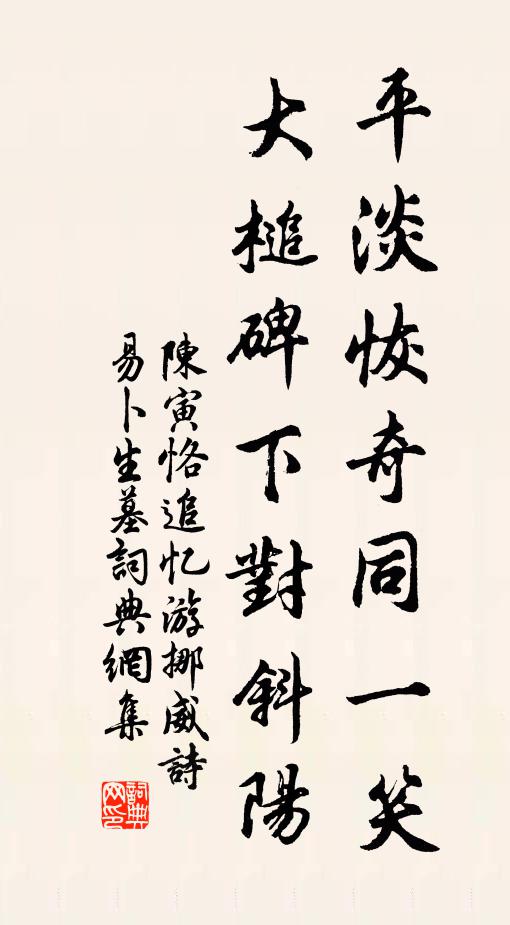 平淡恢奇同一笑
大槌碑下對斜陽
陳寅恪追忆游挪威詩
易卜生墓詞典網集
詞典网印